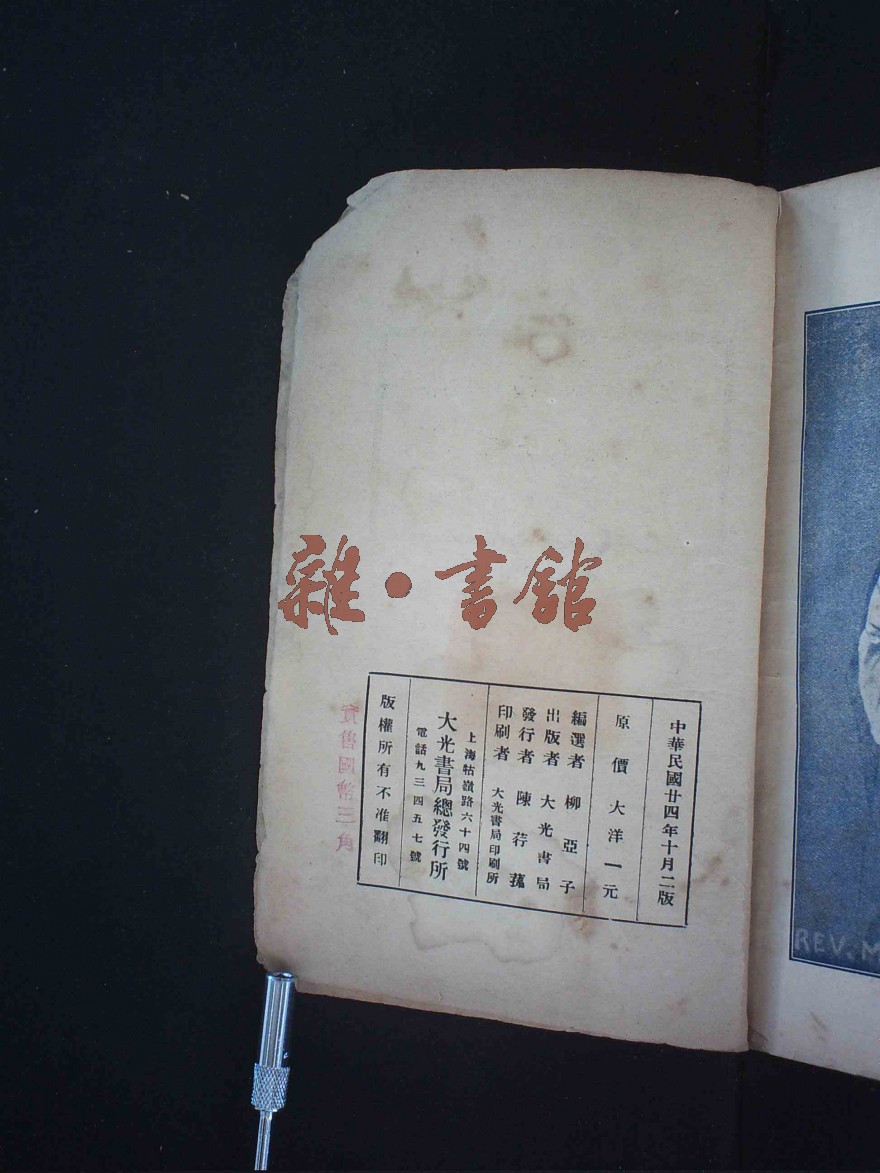 雜·書館
中華民國廿四年十月二版
原價大洋一元
編選者 柳亞子
出版者 大光書局
發行者 陳荇蓀
印刷者 大光書局印刷所
上海牯嶺路六十四號
大光書局總發行所
電話九三四五七號
版權所有不准翻印
實售國幣三角
REV. M